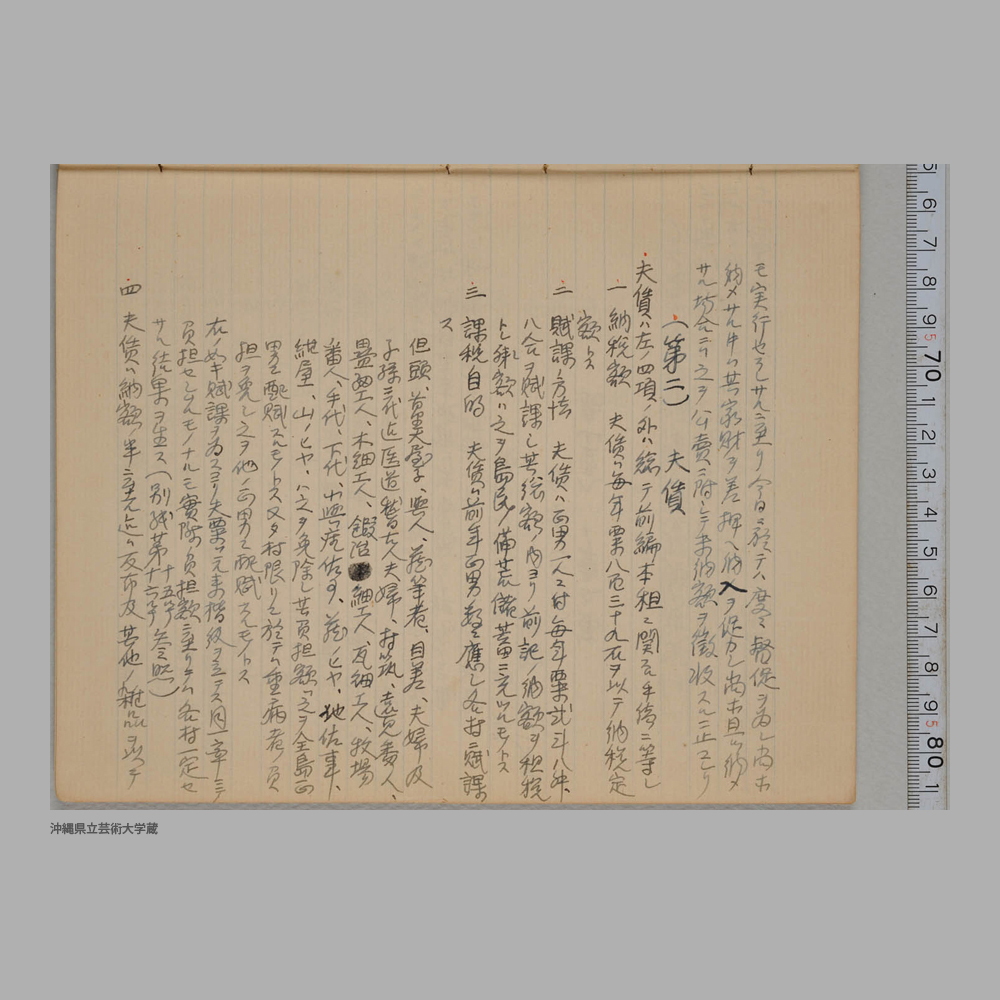 モ実行セラレサルニ至リ今日ニ於テハ度々督促ヲ為シ尚ホ
納メサルトキハ其家財ヲ差押ヘ納入ヲ促カシ尚ホ且ツ納メ
サル場合ニハ之ヲ公賣ニ附シテ未納額ヲ徴収スルニ止マリ
(第二) 夫賃
夫賃ハ左ノ四項ノ外ハ総テ前編本租ニ関スル手續ニ等シ
一 納税額 夫賃ハ毎年粟八百三十九石ヲ以テ納税定
額トス
二 賦課ノ方法 夫賃ハ正男一人ニ付毎年粟弐斗八升
八合ヲ賦課シ其総額ノ内ヨリ前記ノ納額ヲ租税
トシ残額ハ之ヲ島民ノ備荒儲蓄ニ充ツルモノトス
三 課税目的 夫賃ハ前年正男数ニ應シ各村ニ賦課
ス
但頭、首里大屋子、與人、目差、夫婦及
子孫三代迠医道稽古人夫婦、村筑、遠見番人、
畳細工人、木細工人、鍛冶細工人、瓦細工人、牧場
番人、手代、下代、
紺屋、山ノヒヤ、ハ之ヲ免除シ其負担額ハ之ヲ全島正
男ニ配賦スルモノトス又タ村限リニ於テハ重病者ノ負
担ヲ免シ之ヲ他ノ正男ニ配賦スルモノトス
右ノ如キ賦課ヲ為スヨリ夫粟ハ元来階級ヲ立テス同一率ニテ
負担セシムモノナルモ實際ノ負担額ニ至リテハ各村一定セ
サル結果ヲ生ス(別紙第十五号十六号参照)
四 夫賃ハ納額半ニ充迠ハ反布及其他ノ雑品ヲ以テ
5 6 7 8 9 70 1 2 3 4 5 6 7 8 9 80 1
沖縄県立芸術大学蔵